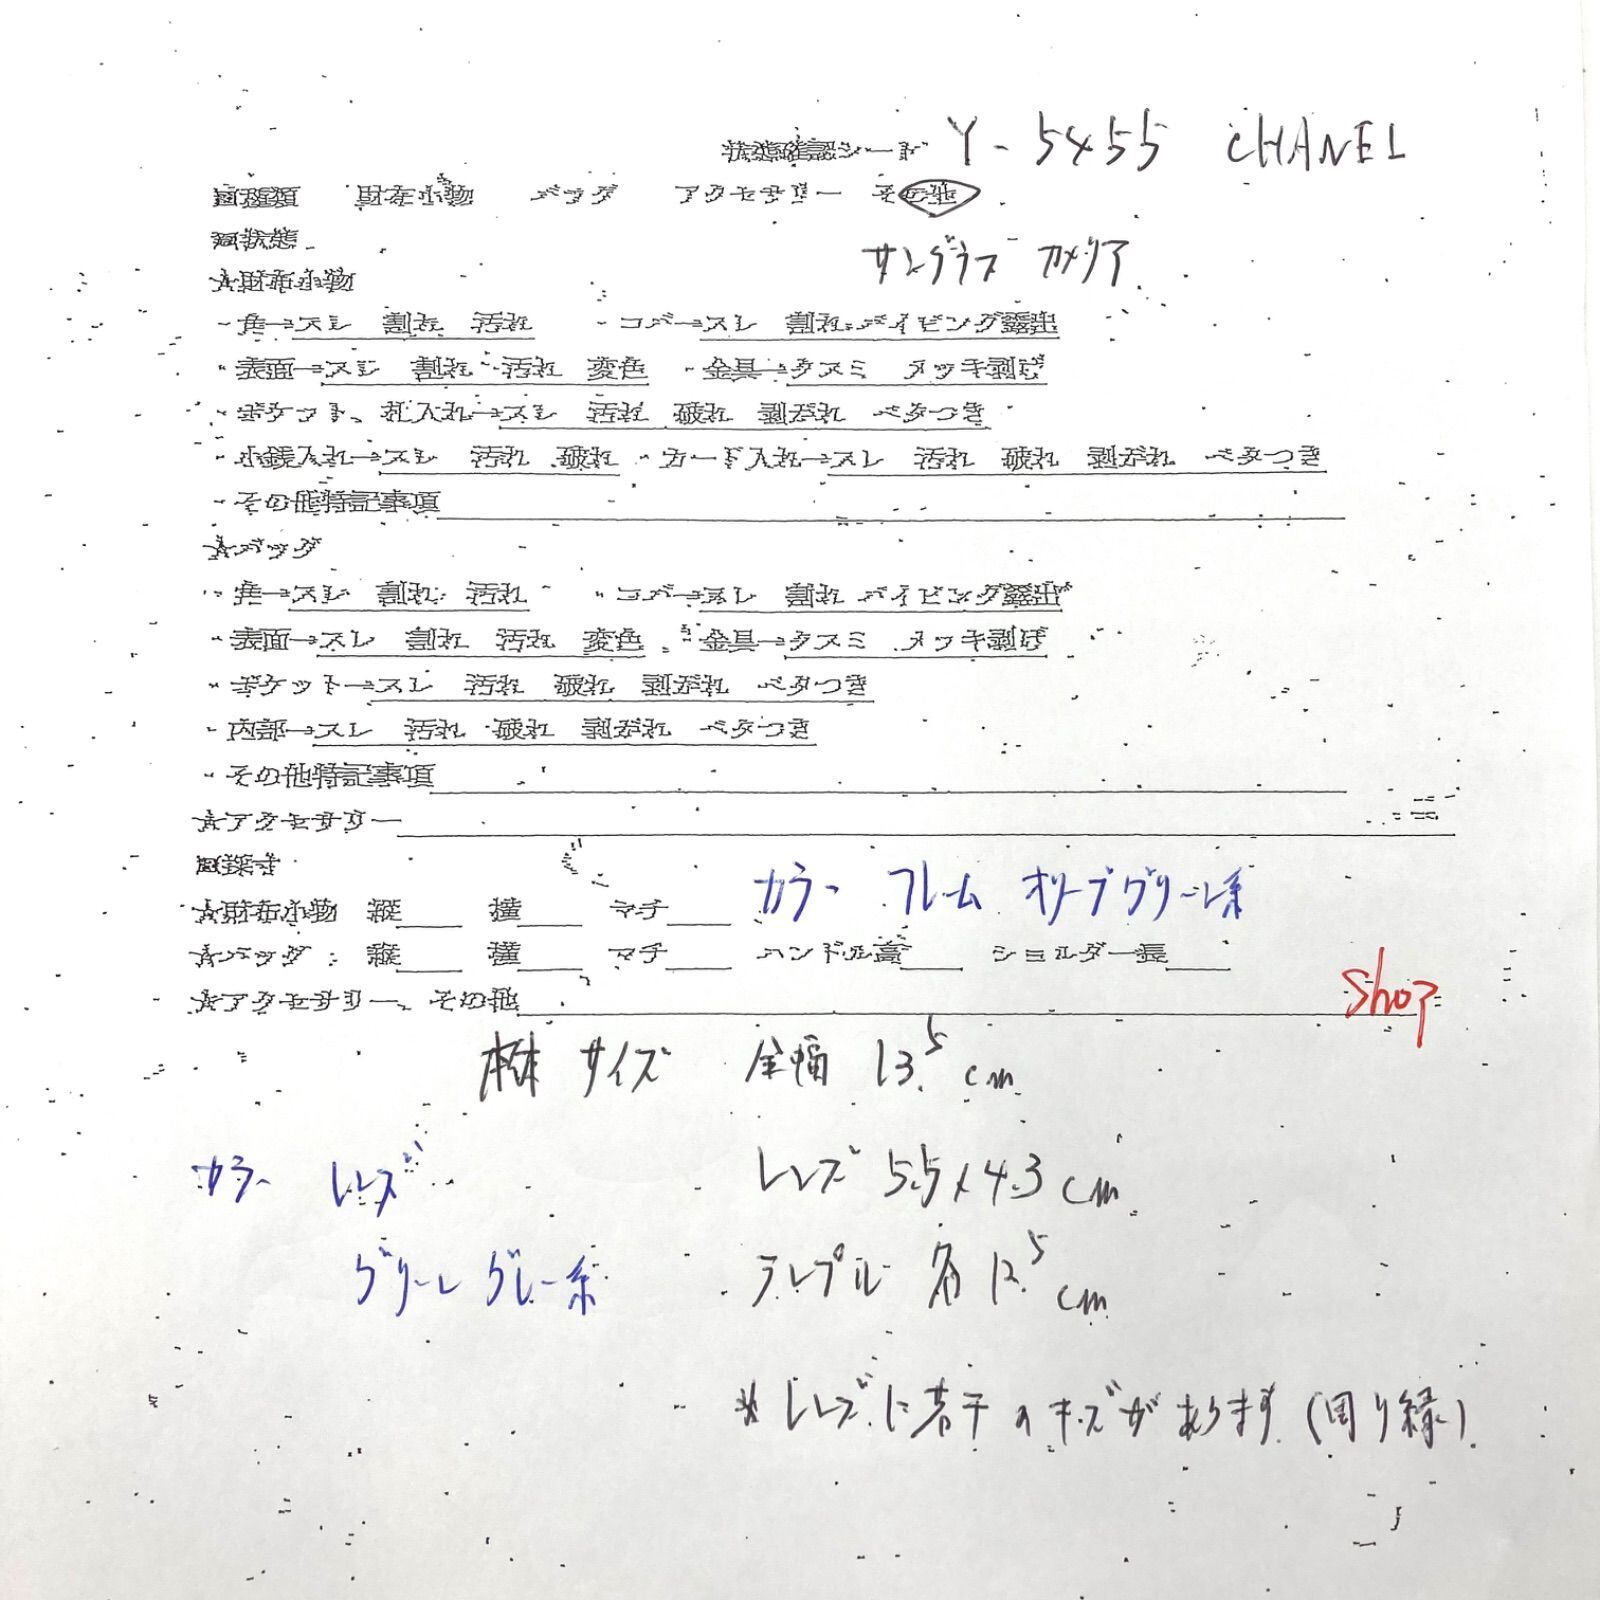 状態確認シート Y-5455 CHANEL
■種類 財布小物 バッグ アクセサリー その他
■状態
サングラス カメリア
☆財布小物
・角→スレ 割れ 汚れ ・コバ→スレ 割れ パイピング露出
・表面→スレ 割れ 汚れ 変色 ・金具→クスミ メッキ剥げ
・ポケット、札入れ→スレ 汚れ 破れ 剥がれ ベタつき
・小銭入れ→スレ 汚れ 破れ ・カード入れ→スレ 汚れ 破れ 剥がれ ベタつき
・その他特記事項
☆バッグ
・角→スレ 割れ 汚れ ・コバ→スレ 割れ パイピング露出
・表面→スレ 割れ 汚れ 変色 ・金具→クスミ メッキ剥げ
・ポケット→スレ 汚れ 破れ 剥がれ ベタつき
・内部→スレ 汚れ 破れ 剥がれ ベタつき
・その他特記事項
☆アクセサリー
■採寸
カラー フレーム オリーブグリーン系
☆財布小物 縦 横 マチ
☆バッグ : 縦 横 マチ ハンドル高 ショルダー長
☆アクセサリー、その他
shop
本体 サイズ 全幅 13.5 cm
カラー レンズ
レンズ 5.5×4.3 cm
グリーングレー系
テンプル 各 12.5 cm
※レンズに若干のキズがあります(周り縁)